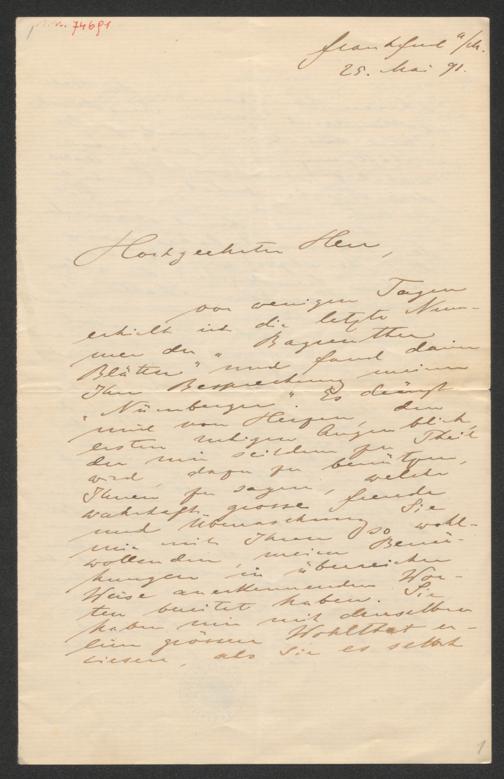 I. N. 74691
Frankfurt a/M.
25. Mai 91.
Hochgeehrter Herr,
vor wenigen Tagen
erhielt ich die letzte Num-
mer der „Bayreuther
Blätter" und fand darin
Ihre Besprechung meiner
„Nürnberger". Es drängt
mich von Herzen, den
ersten ruhigen Augenblick,
der mir seitdem zu Theil
wird, dazu zu benützen,
Ihnen zu sagen, welche
wahrhaft grosse Freude
und Ueberraschung Sie
mir mit Ihren so wohl-
wollenden, meine Bemü-
hungen in überreicher
Weise anerkennenden Wor-
ten bereitet haben. Sie
haben mir mit denselben
eine grössere Wohlthat er-
wiesen, als Sie es selbst
1